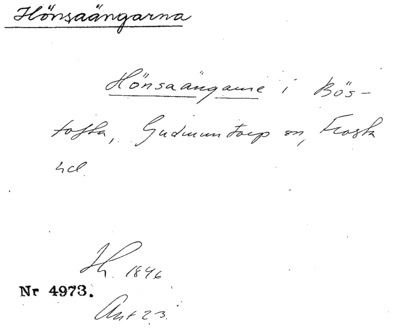 Hönsaängarna
Hönsaängarne i Bös-
tofta, Gudmuntorp sn, Frosta
hd
Jh. 1846
Nr 4973.
Ant 23.